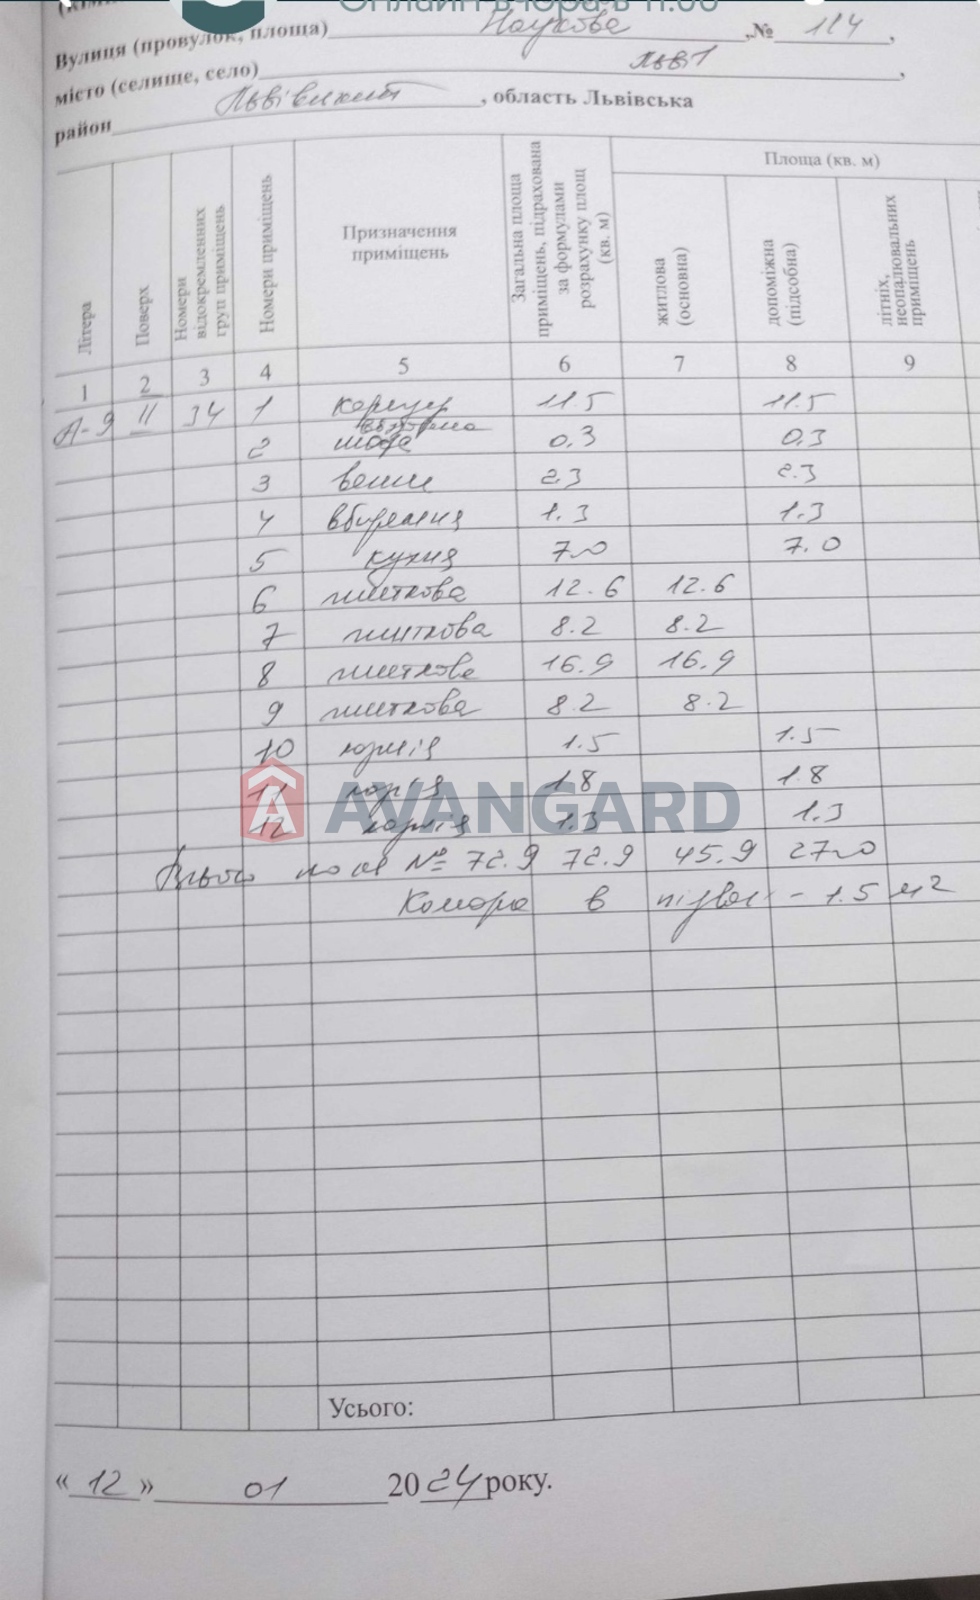 Онлайн вчора в 11:00
Вулиця (провулок, площа) Наукова ,№ 114 ,
місто (селище, село) Львів ,
район , область Львівська
Літера
Поверх
Номери відокремленних груп приміщень
Номери приміщень
Призначення приміщень
Загальна площа приміщень, підрахована за формулами розрахунку площ (кв. м)
Площа (кв. м)
житлова (основна)
допоміжна (підсобна)
літніх, неопалювальних приміщень
1 2 3 4 5 6 7 8 9
А-9 II 34 1 коридор 11.5 11.5
2 шафа вбудована 0.3 0.3
3 ванна 2.3 2.3
4 вбиральня 1.3 1.3
5 кухня 7.0 7.0
6 житлова 12.6 12.6
7 житлова 8.2 8.2
8 житлова 16.9 16.9
9 житлова 8.2 8.2
10 лоджія 1.5 1.5
11 лоджія 1.8 1.8
12 лоджія 1.3 1.3
AVANGARD
Всього по кв № 72.9 72.9 45.9 27.0
Комора в підвалі - 1.5 м2
Усього:
« 12 » 01 2024 року.